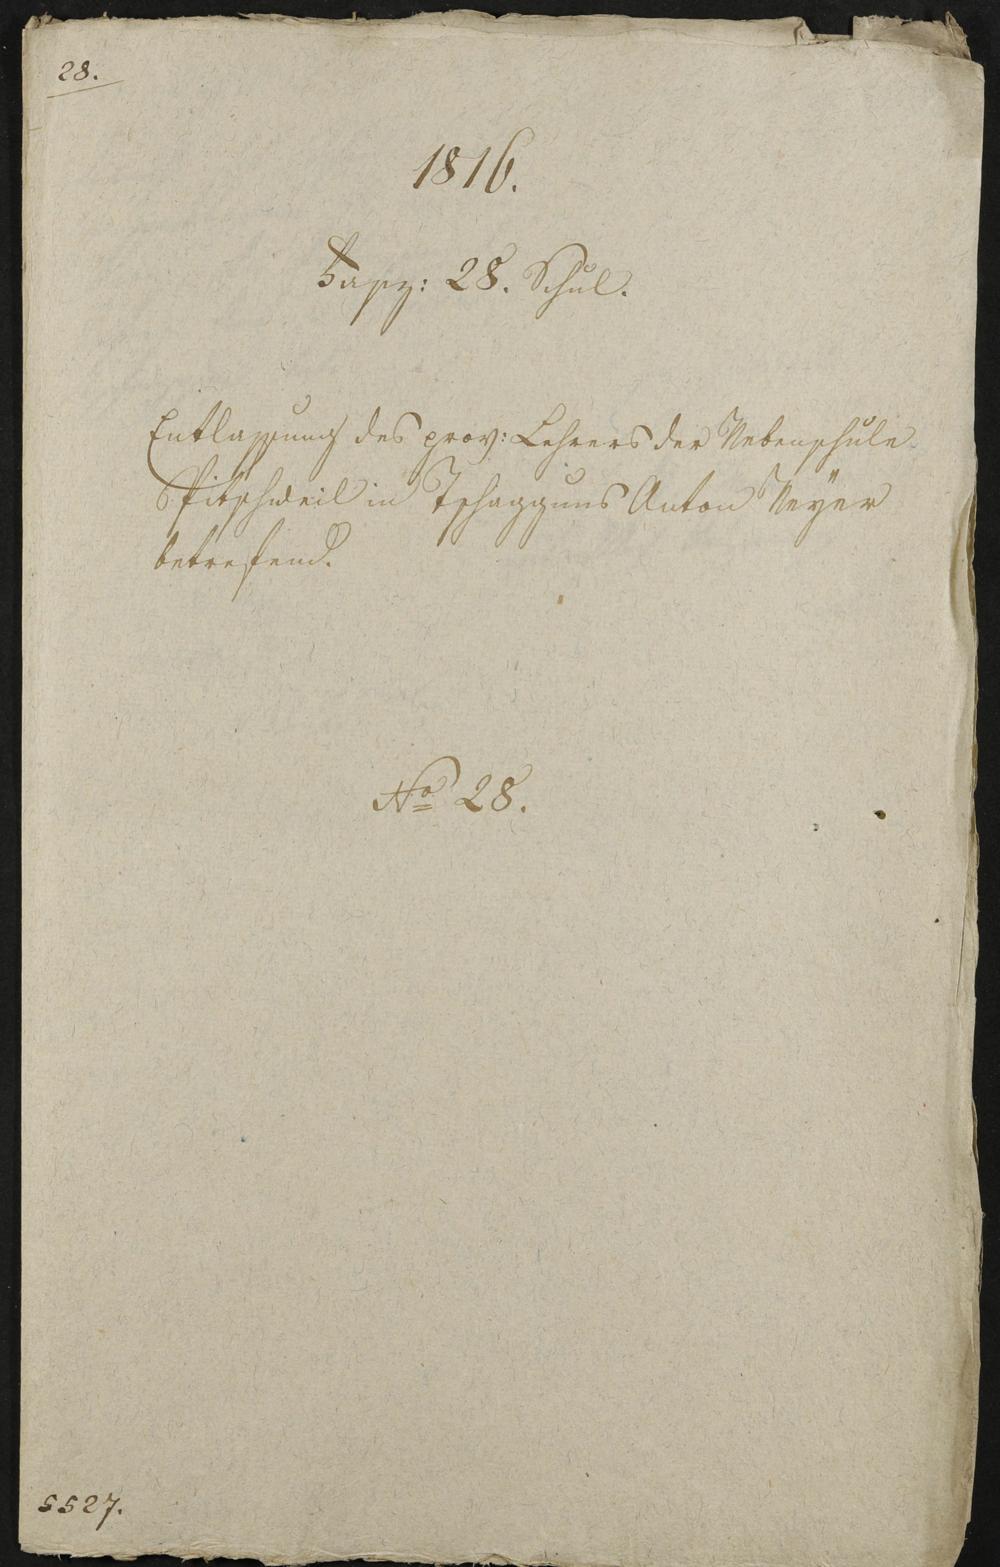 28.
1816.
Fasz: 28. Schul.
Entlassung des prov: Lehrers der Nebenschule
in Tschagguns Anton Neÿer
betrefend.
No 28.
5527.